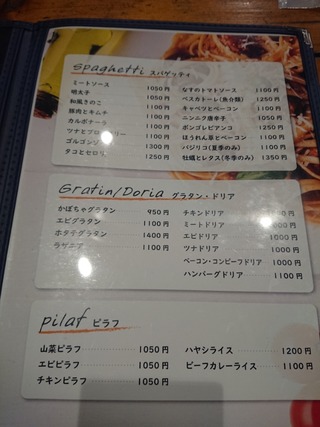 Spaghetti スパゲッティ
ミートソース 1050円
明太子 1050円
和風きのこ 1100円
豚肉とキムチ 1100円
カルボナーラ 1100円
ツナとブロッコリー 1100円
ゴルゴンゾ 1300円
タコとセロリ 1250円
なすのトマトソース 1100円
ペスカトーレ(魚介類) 1250円
キャベツとベーコン 1100円
ニンニク唐辛子 1050円
ボンゴレビアンコ 1250円
ほうれん草とベーコン 1100円
バジリコ(夏季のみ) 1100円
牡蠣とレタス(冬季のみ) 1350円
Gratin/Doria グラタン・ドリア
かぼちゃグラタン 950円
エビグラタン 1100円
ホタテグラタン 1400円
ラザニア 1100円
チキンドリア 円
ミートドリア 円
エビドリア 1000円
ツナドリア 1000円
ベーコン・コンビーフドリア 1000円
ハンバーグドリア 1100円
pilaf ピラフ
山菜ピラフ 1050円
エビピラフ 1050円
チキンピラフ 1050円
ハヤシライス 1200円
ビーフカレーライス 1100円